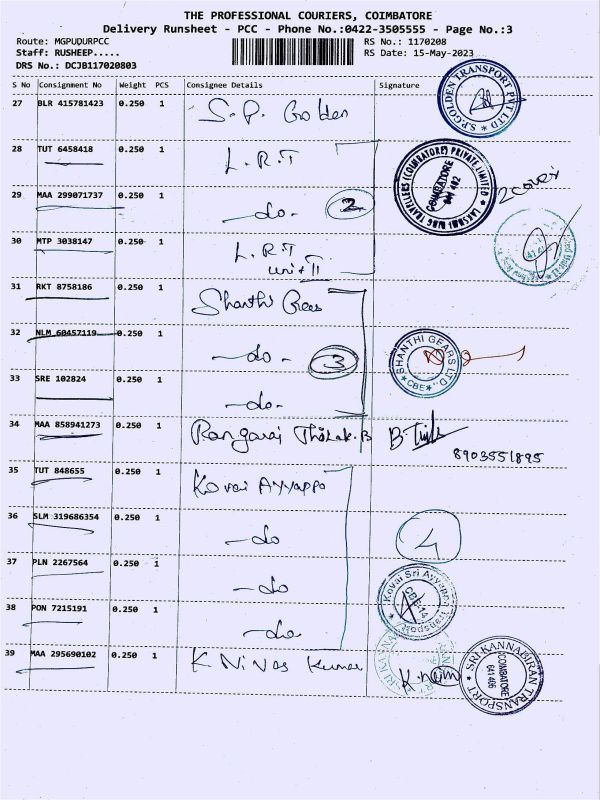 THE PROFESSIONAL COURIERS, COIMBATORE
Delivery Runsheet - PCC - Phone No.:0422-3505555 - Page No.:3
Route: MGPUDURPCC RS No.: 1170208
Staff: RUSHEEP..... RS Date: 15-May-2023
DRS No.: DCJB117020803
S No Consignment No Weight PCS Consignee Details Signature
27 BLR 415781423 0.250 1 S.P. Golden
S.P.GOLDEN TRANSPORT PVT LTD
28 TUT 6458418 0.250 1 L.R.T
LAKSHMI RING TRAVELLERS (COIMBATORE) PRIVATE LIMITED
COIMBATORE
29 MAA 299071737 0.250 1 -do- 2
2 cover
30 MTP 3038147 0.250 1 L.R.T
unit II
31 RKT 8758186 0.250 1 Shanthi Gears
32 NLM 60457119 0.250 1 -do- 3
SHANTHI GEARS LTD.
CBE
33 SRE 102824 0.250 1 -do-
34 MAA 858941273 0.250 1 Rangaraj B
8903551895
35 TUT 848655 0.250 1 Kovai Ayyappa
36 SLM 319686354 0.250 1 -do 4
37 PLN 2267564 0.250 1 -do
Kovai Sri Ayyappa Transport
CBE-14
38 PON 7215191 0.250 1 -do
39 MAA 295690102 0.250 1 K Nivas Kumar
SRI KANNABIRAN TRANSPORT
COIMBATORE